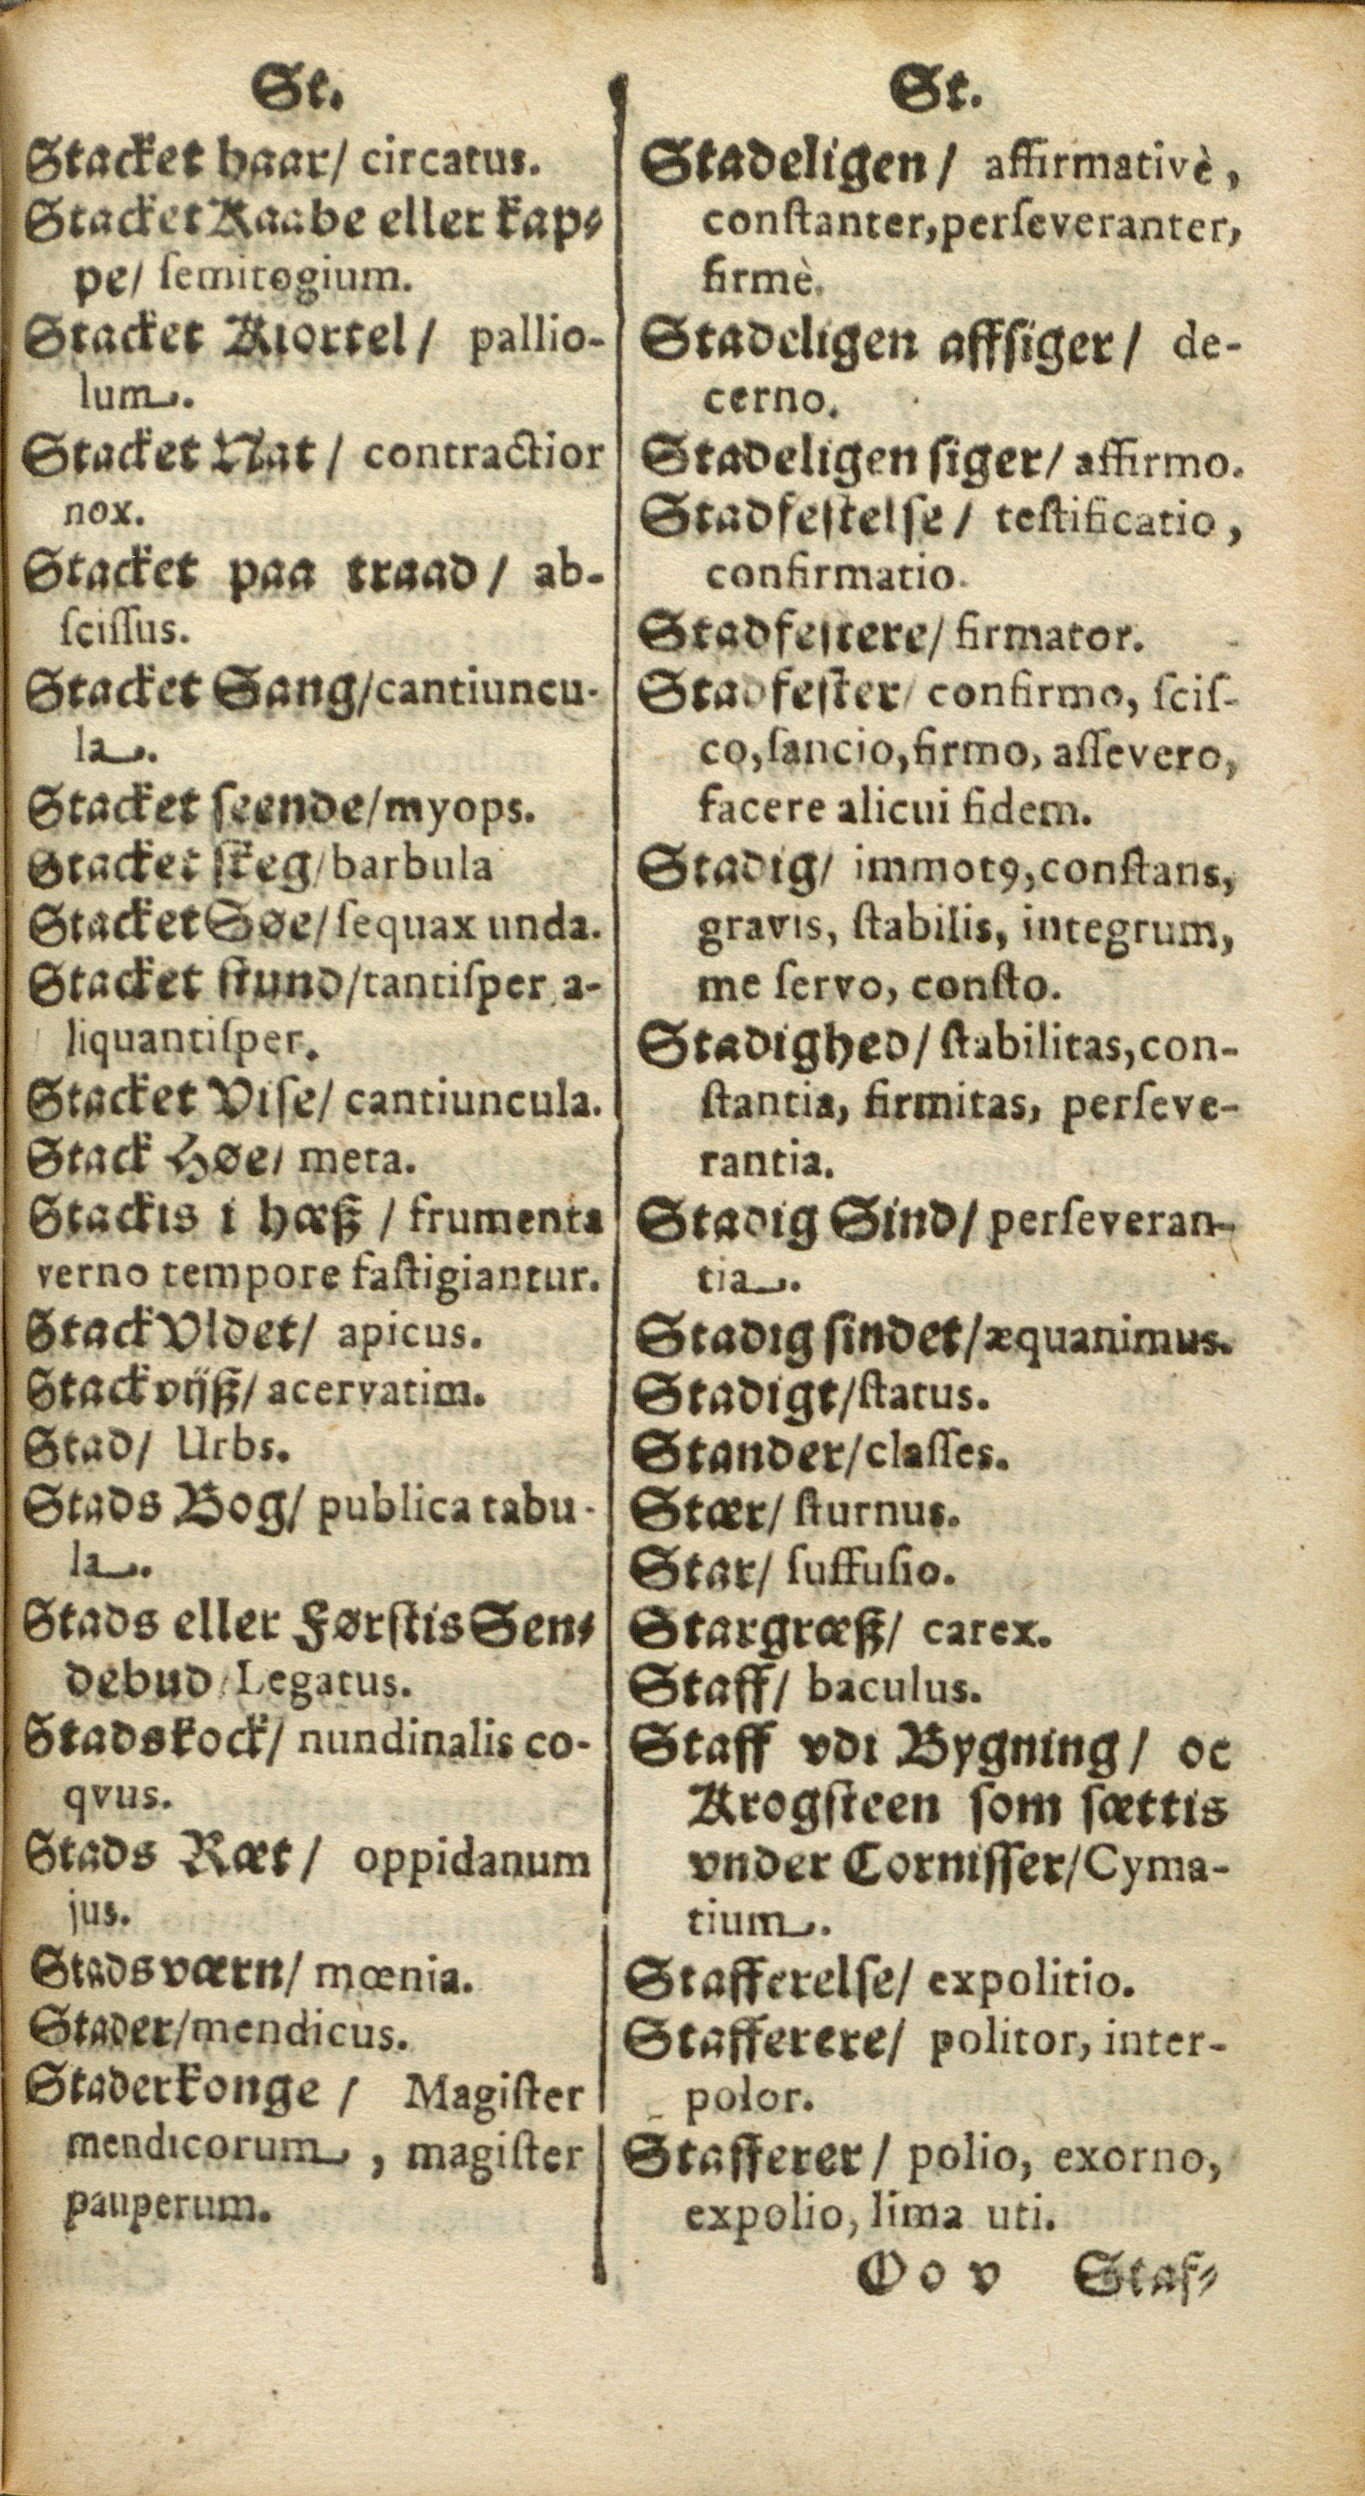 St.
Stacket haar/ circatus.
Stacket Kaabe eller kap⸗
pe/ ſemitogium.
Stacket Kiortel/ pallio-
lum.
Stacket Nat/ contractior
nox.
Stacket paa traad/ ab-
ſciſſus.
Stacket Sang/cantiuncu-
la.
Stacket ſeende/myops.
Stacket ſkeg/barbula
Stacket Søe/ſequax unda.
Stacket ſtund/tantiſper a-
liquantiſper.
Stacket Viſe/ cantiuncula.
Stack Høe/ meta.
Stackis i hæß/ frumenta
verno tempore faſtigiantur.
Stack Vldet/ apicus.
Stack vijß/ acervatim.
Stad/ Urbs.
Stads Bog/ publica tabu-
la.
Stads eller Førſtis Sen⸗
debud/Legatus.
Stadskock/ nundinalis co-
qvus.
Stads Ræt/ oppidanum
jus.
Stadsværn/ mœnia.
Stader/mendicus.
Staderkonge/ Magiſter
mendicorum, magiſter
pauperum.
St.
Stadeligen/ affirmativè,
conſtanter,perſeveranter,
firmè.
Stadeligen affſiger/ de-
cerno.
Stadeligen ſiger/ affirmo.
Stadfeſtelſe/ teſtificatio,
confirmatio.
Stadfeſtere/ firmator.
Stadfeſter/ confirmo, ſciſ-
co,ſancio,firmo, aſſevero,
facere alicui fidem.
Stadig/ immotꝯ,conſtans,
gravis, ſtabilis, integrum,
me ſervo, conſto.
Stadighed/ ſtabilitas,con-
ſtantia, firmitas, perſeve-
rantia.
Stadig Sind/ perſeveran-
tia.
Stadig ſindet/æquanimus.
Stadigt/ſtatus.
Stander/claſſes.
Stær/ ſturnus.
Star/ ſuffuſio.
Stargræß/ carex.
Staff/ baculus.
Staff vdi Bygning/ oc
Krogſteen ſom ſættis
vnder Corniſſer/Cyma-
tium.
Stafferelſe/ expolitio.
Stafferere/ politor, inter-
polor.
Stafferer/ polio, exorno,
expolio, lima uti.
O o v Staf⸗